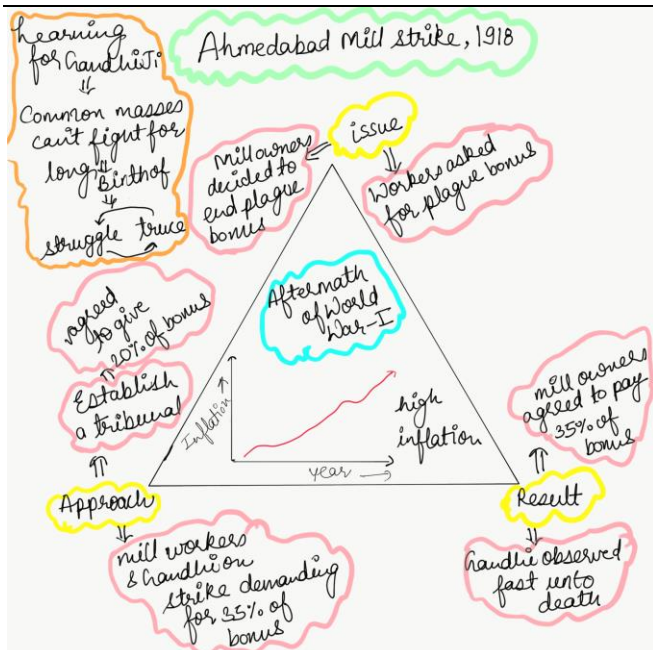 Learning
for GandhiJi
⇓
Common masses
can't fight for
long
⇓
Birth of
↓
struggle truce
Ahmedabad Mill Strike, 1918
issue
Mill owners
decided to
end plague
bonus
Workers asked
for plague bonus
Aftermath
of World
War-I
Inflation →
year →
high
inflation
agreed
to give
20% of bonus
Establish
a tribunal
Approach
mill workers
& Gandhi on
strike demanding
for 35% of
bonus
mill owners
agreed to pay
35% of
bonus
Result
Gandhi observed
fast unto
death